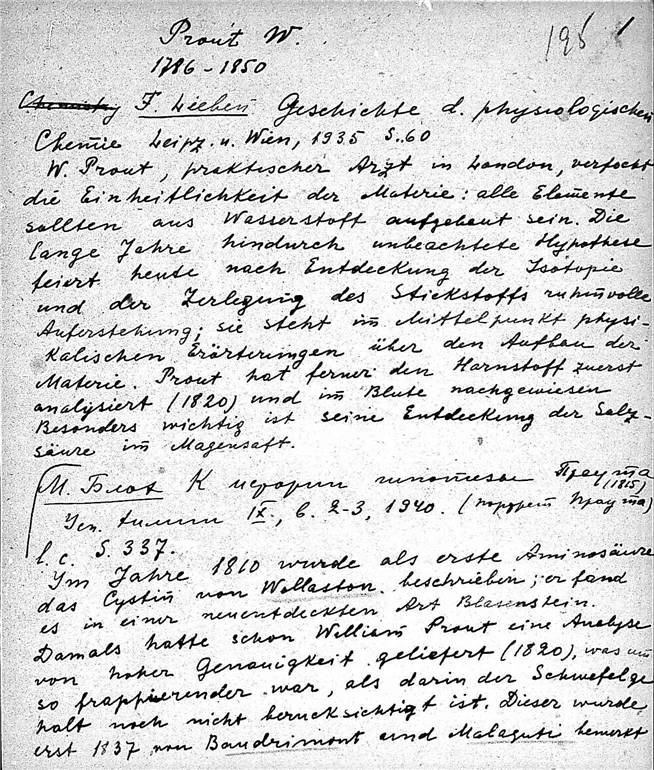 Prout W.
195
1786-1850
Chemistry F. Lieben Geschichte d. physiologischen
Chemie Leipz. u. Wien, 1935 S. 60
W. Prout, praktischer Arzt in London, verfocht
die Einheitlichkeit der Materie: alle Elemente
sollten aus Wasserstoff aufgebaut sein. Die
lange Jahre hindurch unbeachtete Hypothese
feiert heute nach Entdeckung der Isotopie
und der Zerlegung des Stickstoffs ruhmvolle
Auferstehung; sie steht im Mittelpunkt physi-
kalischen Erörterungen über den Aufbau der
Materie. Prout hat ferner den Harnstoff zuerst
analysiert (1820) und im Blute nachgewiesen
Besonders wichtig ist seine Entdeckung der Salz-
säure im Magensaft.
М. Блох К истории гипотезы Праута
(1815)
Усп. химии IX, в. 2-3, 1940. (портрет Праута)
l. c. S. 337.
Im Jahre 1810 wurde als erste Aminosäure
das Cystin von Wollaston beschrieben; er fand
es in einer neuentdeckten Art Blasenstein.
Damals hatte schon William Prout eine Analyse
von hoher Genauigkeit geliefert (1820), was um
so frappierender war, als darin der Schwefelge
halt noch nicht berucksichtigt ist. Dieser wurde
erst 1837 von Baudrimont und Malaguti bemerkt